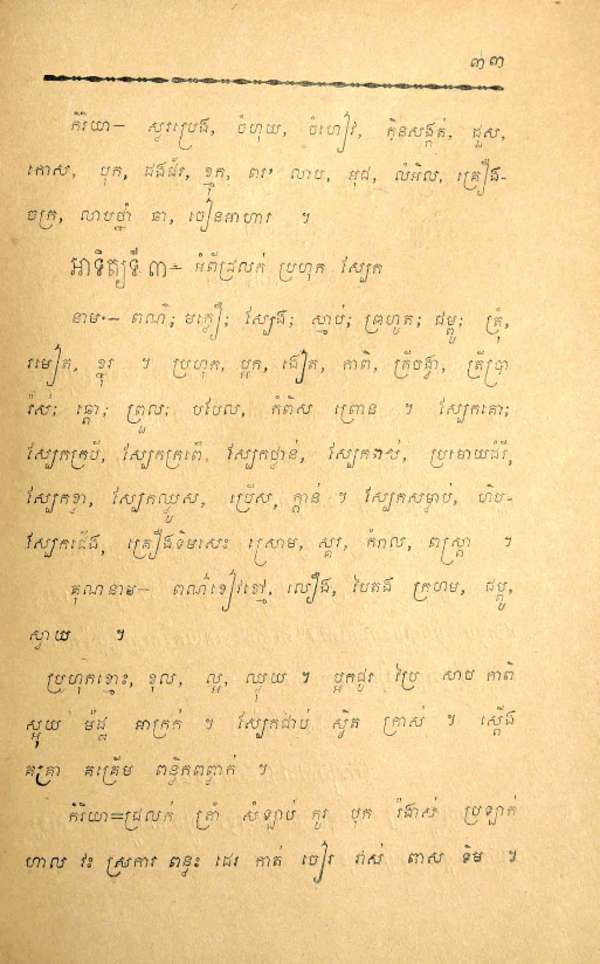 ៣៣
កិរិយា— ស្ងរប្រេង, ចំហុយ, ចំហៀវ, ក្អិនសង្កត់, ដួស,
កោស, បុក, ដងដ័រ, ខ្មុក, ពរ លាប, អុជ, លំអិល, គ្រឿង-
ចក្រ, លាបថ្នាំ ឆា, ចៀនអាហារ ។
អាទិត្យទី ៣— អំពីជ្រលក់ ប្រហុក ស្បែក
នាម— ពណ៌; មក្លឿ; ស្បែង; ស្មាប់; ព្រហូត; ជម្ពូ; ត្រុំ,
រមៀត, ខ្នុរ ។ ប្រហុក, ប្អក, ងៀត, កាពិ, ក្រឹចង្វា, ត្រីប្រា
រ៉ស់; ឆ្តោ; ព្រួល; បបែល, កំពិស ព្រោន ។ ស្បែកគោ;
ស្បែកក្របី, ស្បែកក្រពើ, ស្បែកថ្លាន់, ស្បែកពស់, ប្រមោយដំរី,
ស្បែកខ្លា, ស្បែកឈ្លូស, ប្រើស, ក្តាន់ ។ ស្បែកសម្លាប់, ហិប-
ស្បែកជើង, គ្រឿងទិមសេះ ស្រោម, ស្គរ, កំរាល, ពស្ត្រា ។
គុណនាម— ពណ៌ខៀវខ្មៅ, លឿង, បៃតង ក្រហម, ជម្ពូ,
ស្វាយ ។
ប្រហុកខ្មោះ, ខុល, ល្អ, ឈ្ងុយ ។ ប្អកជូរ ប្រៃ សាប កាពិ
ស្អុយ ម៉ដ្ឋ អាក្រក់ ។ ស្បែកជាប់ ស្វិត ក្រាស់ ។ ស្តើង
គគ្រា គគ្រើម ពន្លិកពព្លាក់ ។
កិរិយា=ជ្រលក់ ត្រាំ សំឡាប់ កូរ បុក រំងាស់ ប្រឡាក់
ហាល វះ ស្រការ ពន្លះ ដេរ កាត់ ចៀរ រាស់ ពាស ទិម ។